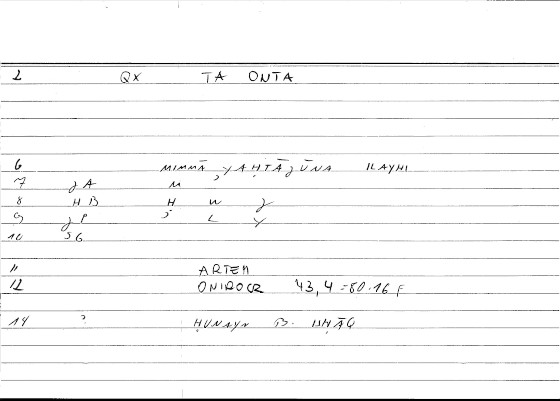 2 QX TA ONTA
6 MIMMĀ YAḤTĀǦŪNA ILAYHI
7 ǧA M
8 HB Ḥ W Ǧ
9 ǧP L Y
10 SG
11 ARTEM
12 ONIROCR 43,4 = 80.16 F
14 ? ḤUNAYN B. ISḤĀQ